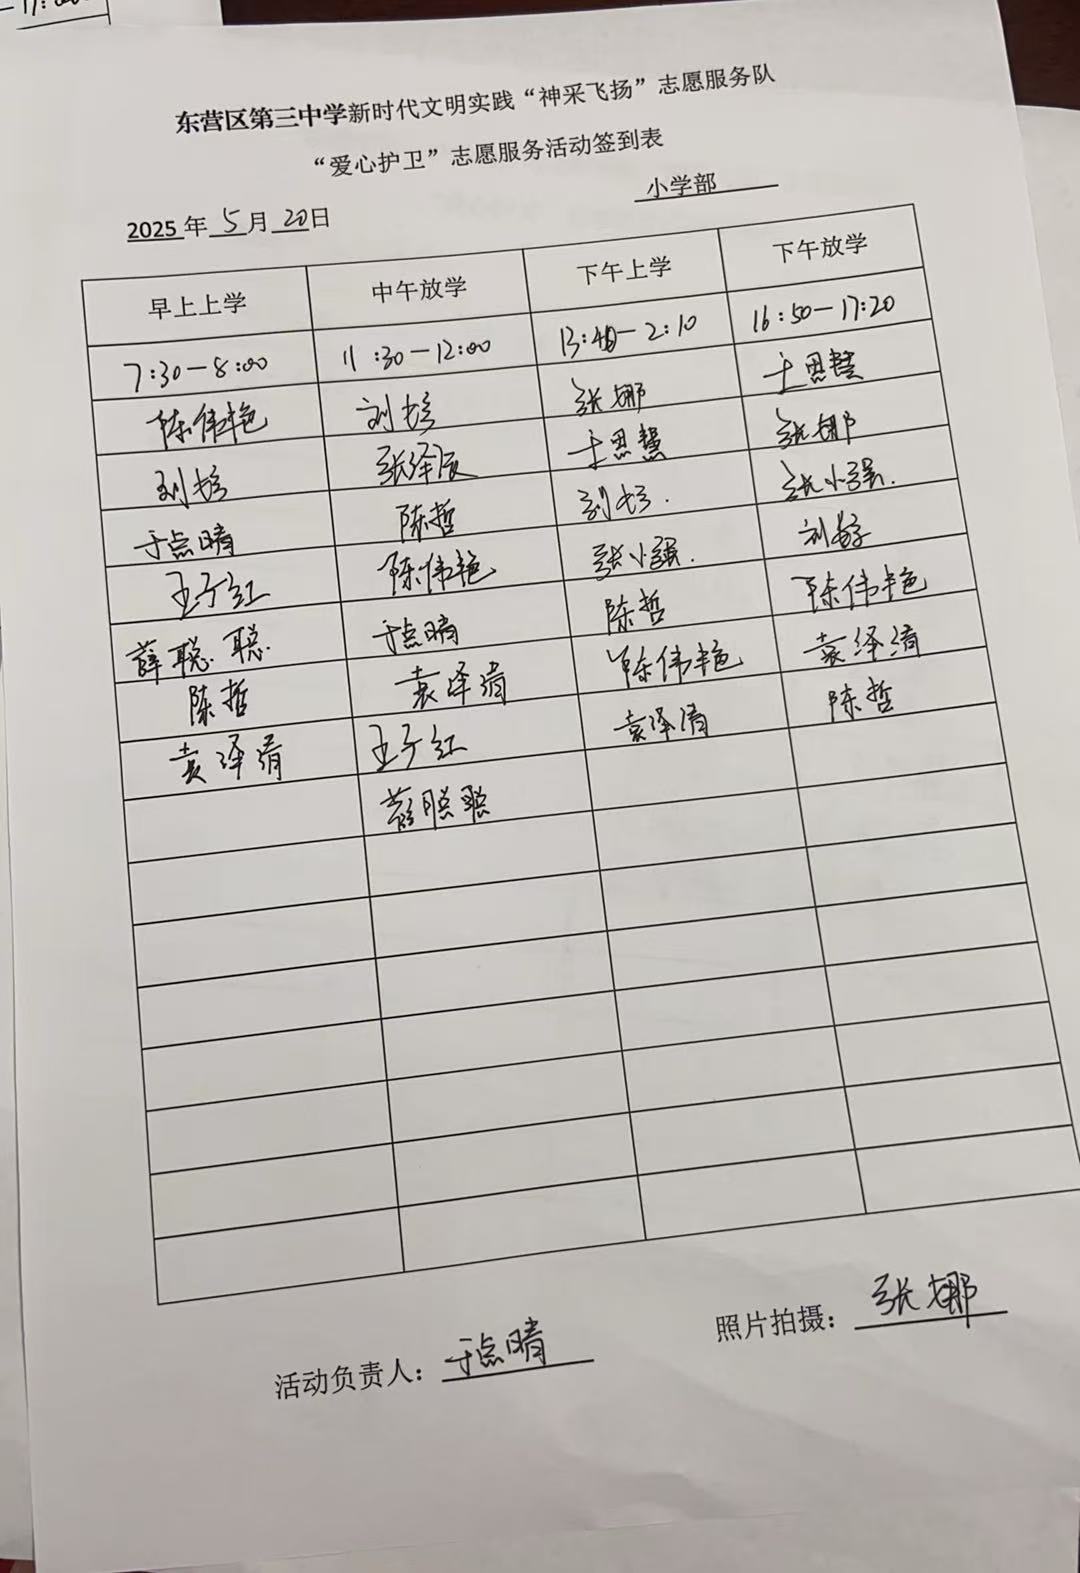 东营区第三中学新时代文明实践“神采飞扬”志愿服务队
“爱心护卫”志愿服务活动签到表
小学部
2025年5月20日
早上上学 中午放学 下午上学 下午放学
7:30-8:00 11:30-12:00 13:40-2:10 16:50-17:20
陈伟艳 刘 张娜 于思慧
刘 张泽辰 于思慧 张娜
于点晴 陈哲 刘 张小强.
王子红 陈伟艳 张小强. 刘
薛聪聪 于点晴 陈哲 陈伟艳
陈哲 袁泽清 陈伟艳 袁泽清
袁泽清 王子红 袁泽清 陈哲
薛聪聪
活动负责人：于点晴 照片拍摄：张娜